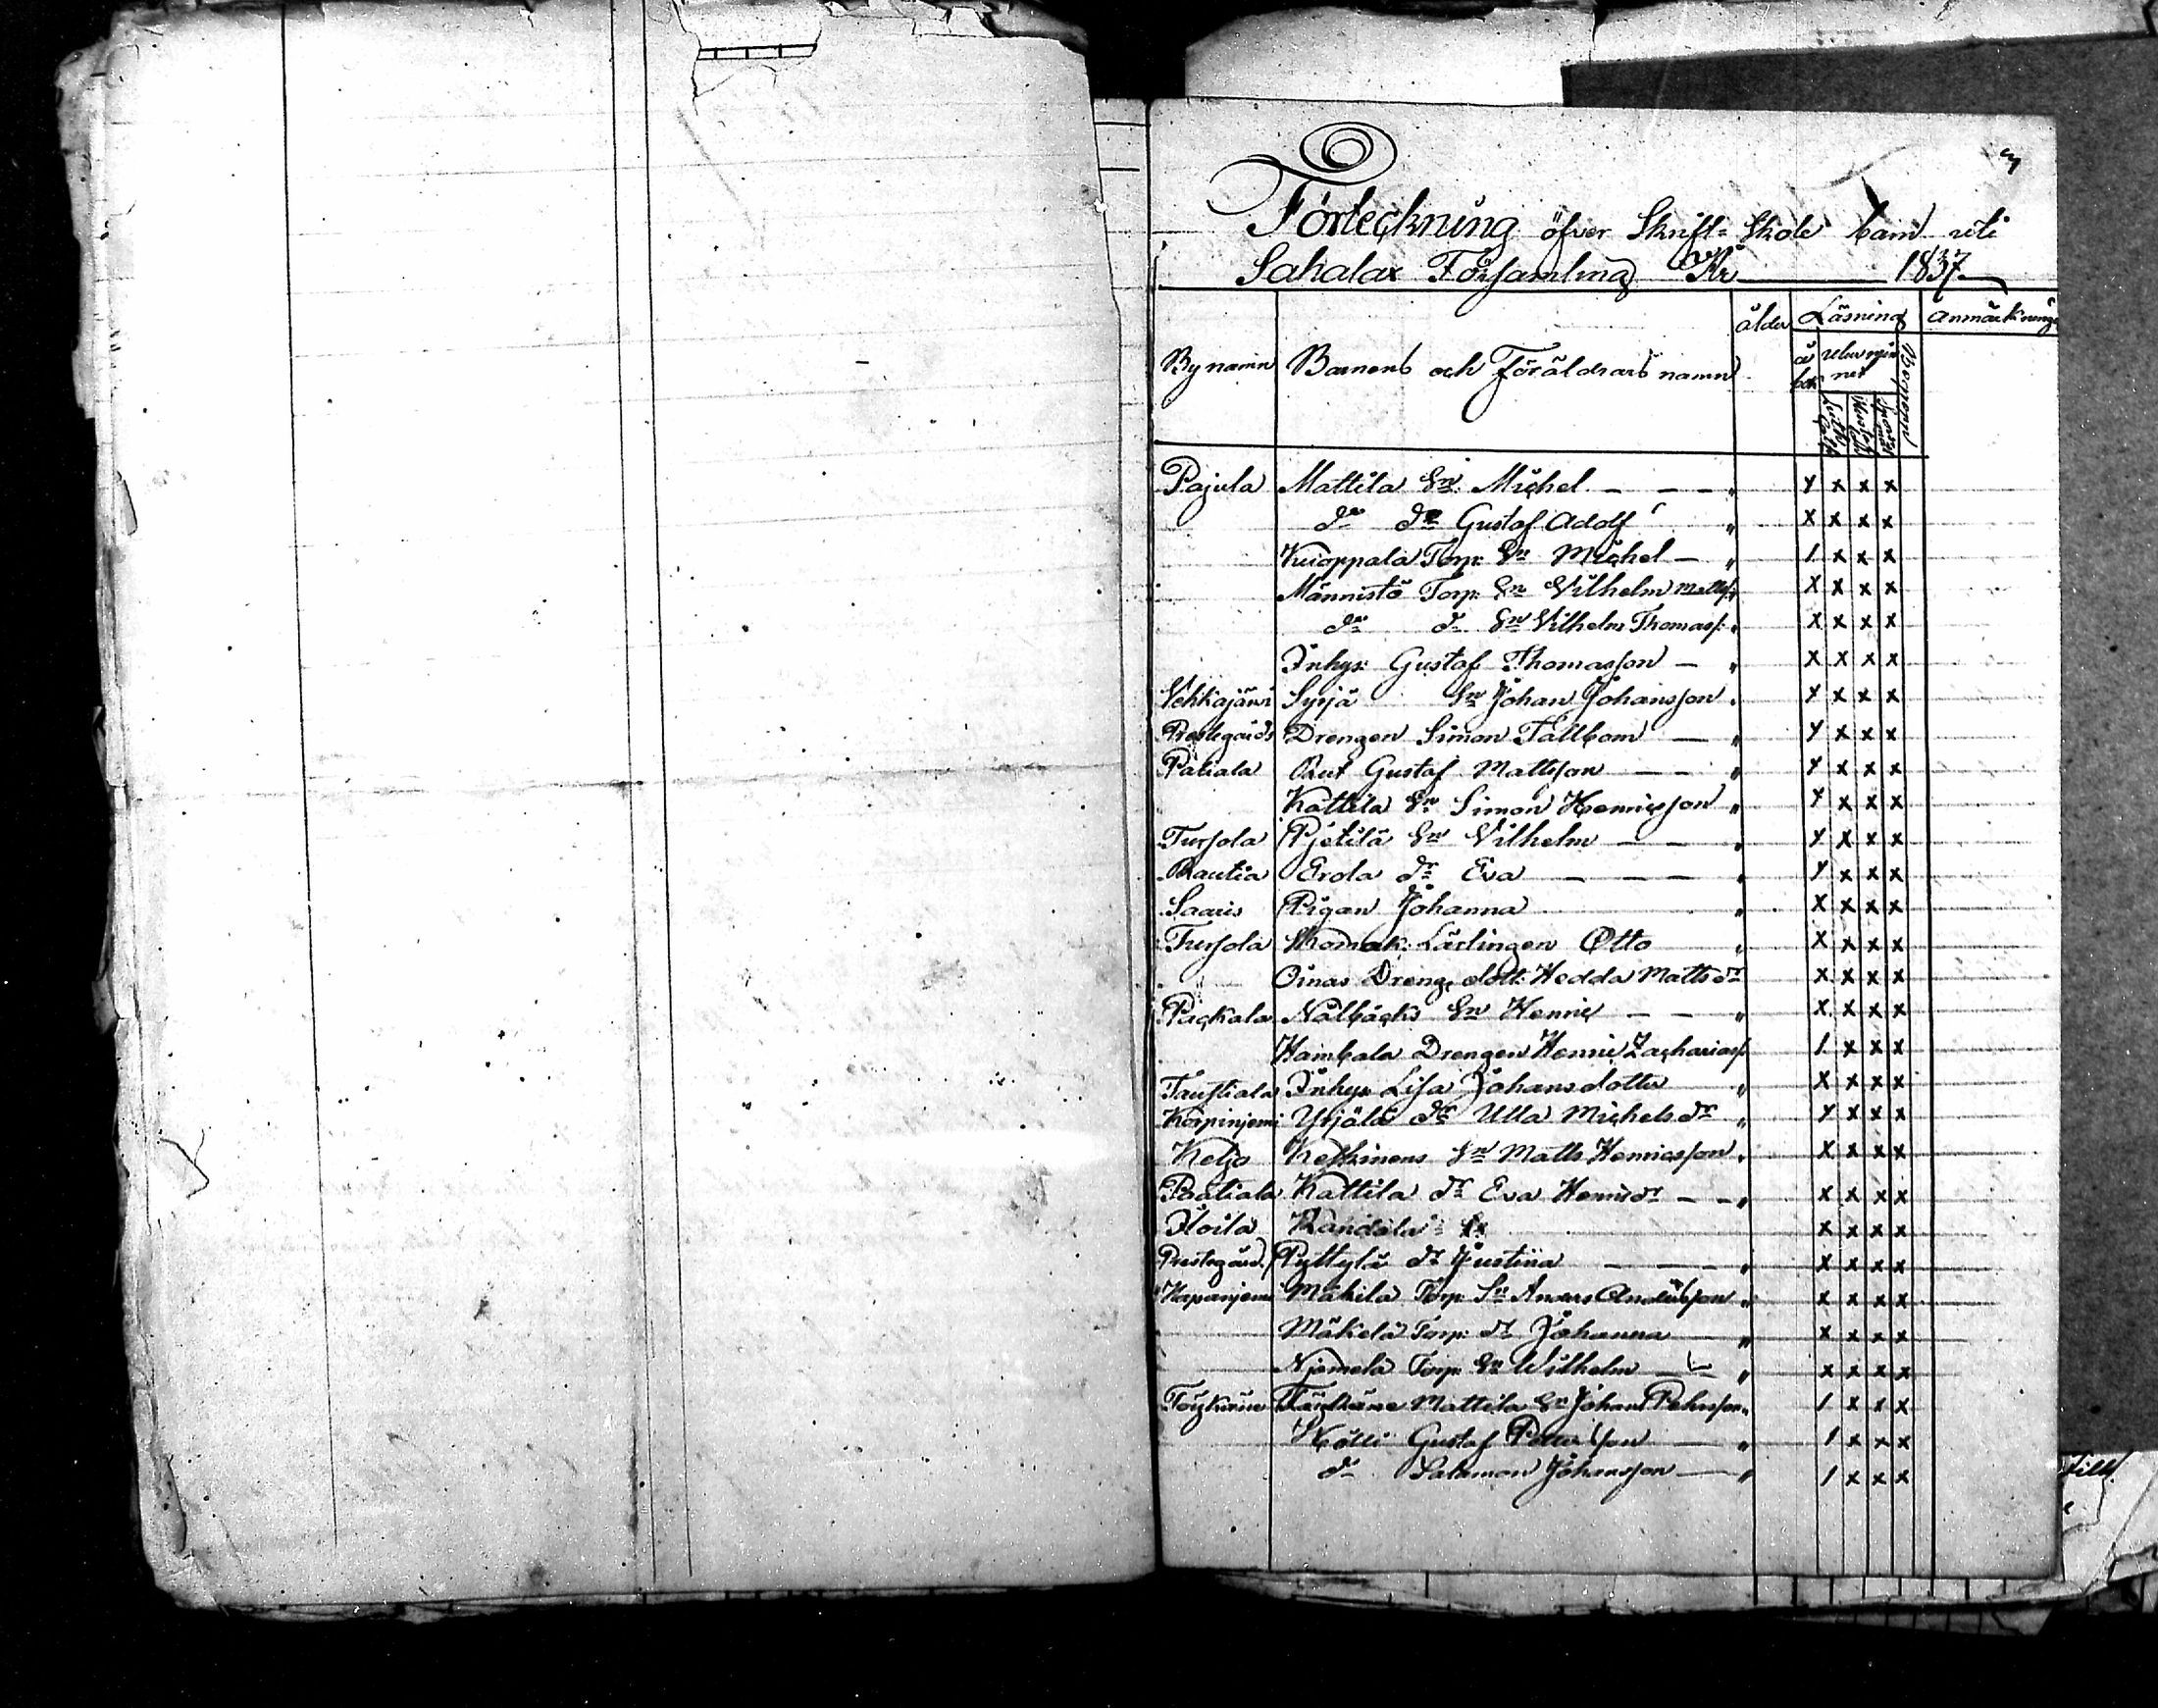 3
Förteckning öfver Skrift-Skole barn uti
Sahalax Församling År 1837
By namn Barnens och Föräldrars namn ålder Läsning Anmärkning
å bok utur min net Begrepp
Pajula Mattila Sn Michel — — — " x x x x
do do Gustaf Adolf " x x x x
Kuoppala Torp: Sn Michel — " 1 x x x
Männistö Torp: Sn Vilhelm Matts: " x x x x
do do Sn Vilhelm Thomass: " x x x x
Inhys: Gustaf Thomasson — " x x x x
Vehkajärvi Syrjä Sn Johan Johansson " x x x x
Prestegårds Drengen Simon Tallbom — " x x x x
Pakala Rut Gustaf Mattsson — — " x x x x
Kattila Sn Simon Henricsson " x x x x
Tursola Pjetilä Sn Vilhelm — — " x x x x
Rautia Erola dr Eva — — — " x x x x
Saaris Pigan Johanna " x x x x
Tursola Skomak: Lärlingen Otto " x x x x
Oinas Dreng. dott: Hedda Matts dr x x x x
Packala Nälbäcks Sn Henric — — " x x x x
Hambala Drengen Henric Zachariass: 1 x x x
Taustiala Inhys Lisa Johansdotter " x x x x
Korpinjemi Yrjölä dr Ulla Michels dr " x x x x
Keljo Keskinens Sn Matts Henricsson " x x x x
Paatiala Kattila dr Eva Henricsdr — — " x x x x
Iloila x x x x
Prestegård. Pyttylä dr Justina — — — " x x x x
Hapanjemi Mäkilä Torp: Sn Anders Andersson " x x x x
Mäkelä Torp: dr Johanna — " x x x x
Njemelä Torp: Sn Wilhelm — " x x x x
Mattila Sn Johan Pehrsson " 1 x x x
Gustaf Pettersson — " 1 x x x
do Salomon Johansson — " 1 x x x
till